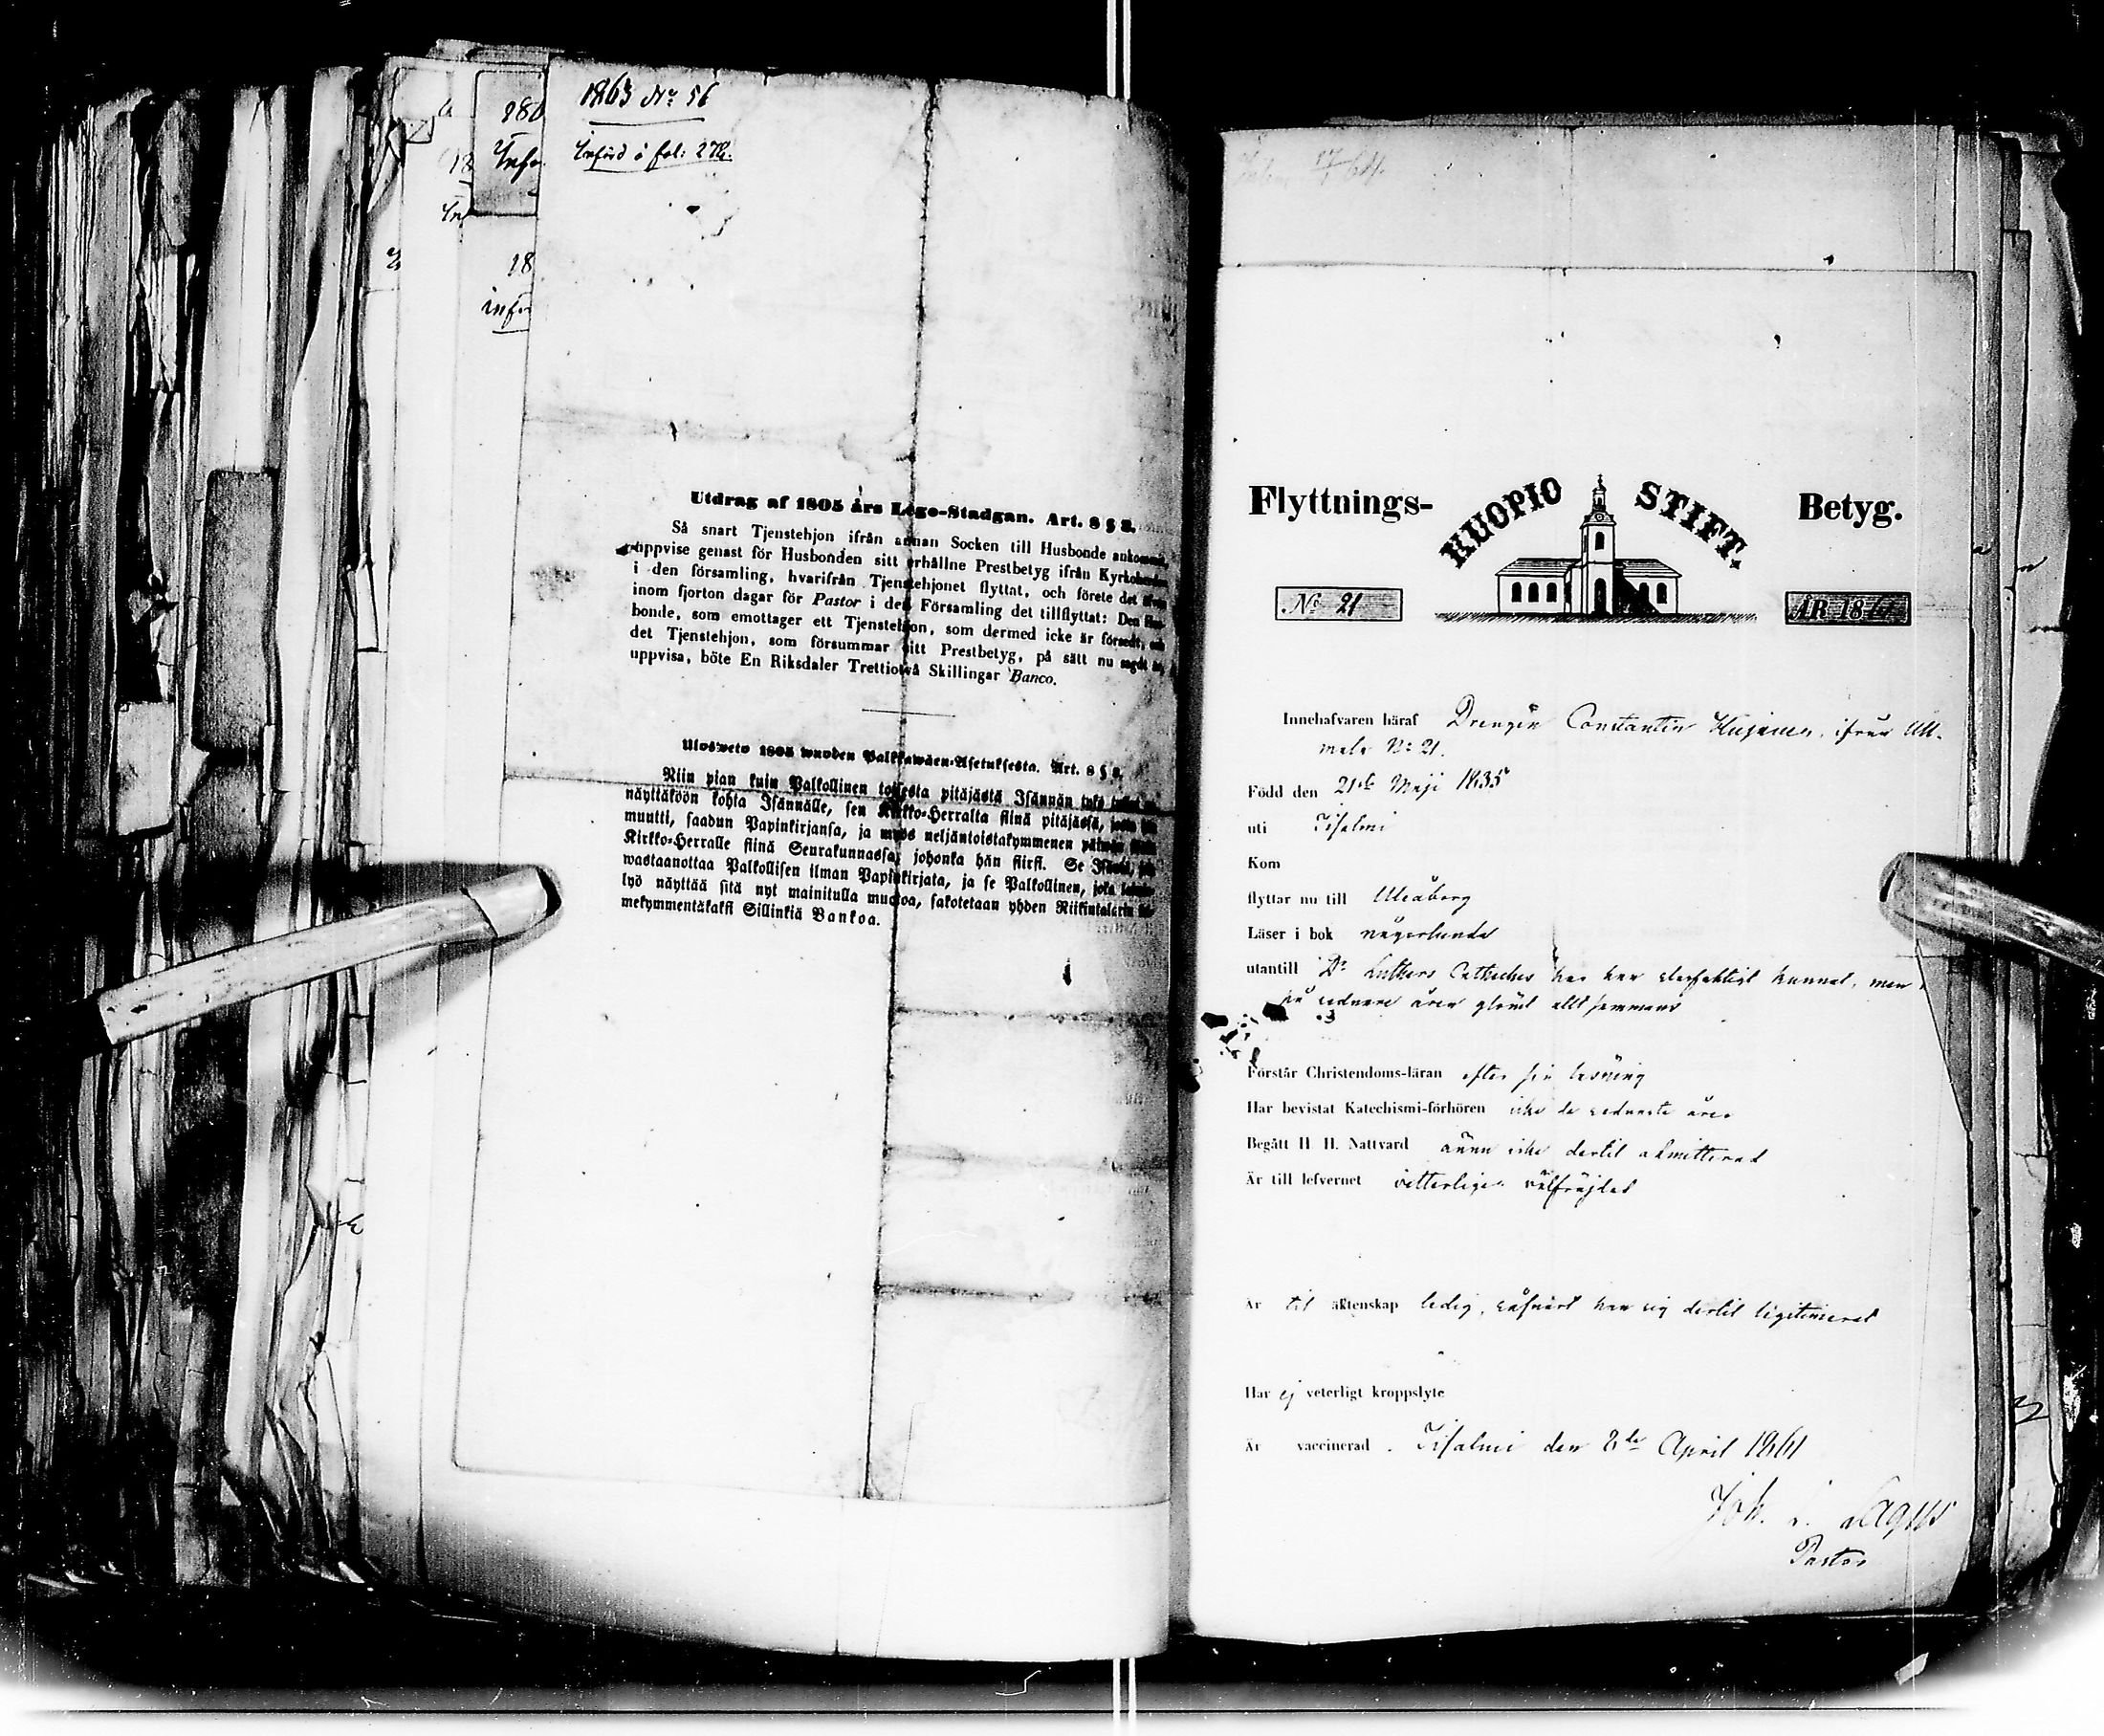 1863 No 56
Införd å fol: 278.
280
Infö
18
inför
Utdrag af 1805 års Lego-Stadgan. Art. 8 § 8.
Så snart Tjenstehjon ifrån annan Socken till Husbonde
uppvise genast för Husbonden sitt erhållne Prestbetyg ifrån
i den församling, hvarifrån Tjenstehjonet flyttat, och förete det
inom fjorton dagar för Pastor i den Församling det tillflyttat: Den Hus-
bonde, som emottager ett Tjenstehjon, som dermed icke är försedt, och
det Tjenstehjon, som försummar sitt Prestbetyg, på sätt nu sagdt är,
uppvisa, böte En Riksdaler Trettiotvå Skillingar Banco.
Ulosweto 1805 wuoden Palkkawäen-Asetuksesta. Art. 8 § 8.
Niin pian kuin Palkollinen toisesta pitäjästä Isännän tykö
näyttäköön kohta Isännälle, sen Kirkko-Herralta siinä pitäjässä,
muutti, saadun Papinkirjansa, ja myös neljäntoistakymmenen päiwän
Kirkko-Herralle siinä Seurakunnassa, johonka hän siirsi. Se
wastaanottaa Palkollisen ilman Papinkirjata, ja se Palkollinen, joka
lyö näyttää sitä nyt mainitulla muotoa, sakotetaan yhden Riikintalarin
mekymmentäkaksi Sillinkiä Bankoa.
17/1 64.
Flyttnings- KUOPIO STIFT. Betyg.
No 21 ÅR 1861
Innehafvaren häraf Drengen Constantin ifrån
mala No 21.
Född den 21ste Maji 1835
uti Iisalmi
Kom
flyttar nu till Uleåborg
Läser i bok någorlunda
utantill Dr Luthers Catheches har han kunnat, men
på sednare åren glömt alltsammans
Förstår Christendoms-läran efter sin läsning
Har bevistat Katechismi-förhören icke de sednaste åren
Begått H H. Nattvard ännu icke dertil admitterad
Är till lefvernet vitterligen välfräjdad
Är til äktenskap ledig, såframt han sig dertil legitimerat
Har ej veterligt kroppslyte
Är vaccinerad. Iisalmi den 8de April 1861
Joh. Lagus
Pastor